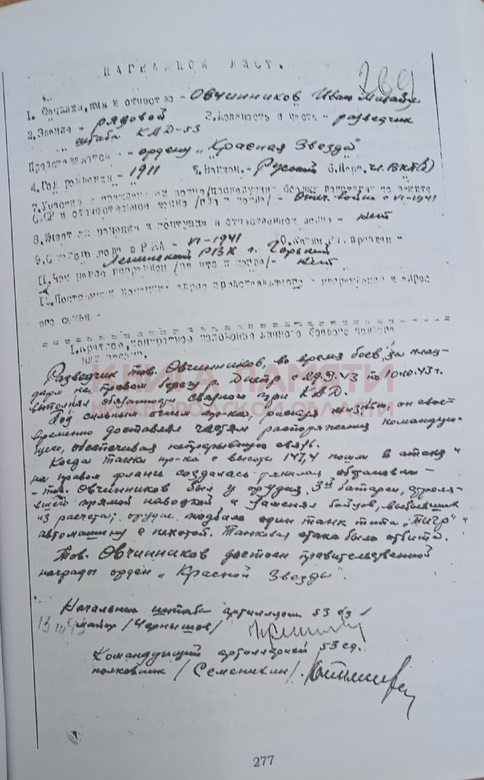 369
НАГРАДНОЙ ЛИСТ.
1. Фамилия, имя и отчество - Овчинников Иван Михайл.
2. Звание - рядовой 3. Должность и часть - разведчик
штаба КАД-53
Представляется - ордену "Красная Звезда"
4. Год рождения - 1911 5. Национ. - Русский 6. Парт. чл. ВКП(б)
7. Участие в
и отечественной войне - Отеч. войне с VI-1941
8. Имеет ли ранения и контузии в отечественной войне - нет
9. С какого года в РККА - VI-1941 10. Каким РВК призван -
Ленинский РВК г. Горький
11. Чем ранее награжден /за что и когда/ - нет
12. Постоянный домашний адрес представляемого к награждению и адрес
его семьи -
1. Краткое, конкретное изложение личного боевого подвига
КНИГА ПАМЯТИ
НИЖЕГОРОДСКОЙ ОБЛАСТИ
Разведчик тов. Овчинников, во время боев за плац-
дарм на правом берегу р. Днепр с 29.9.43 по 10.10.43 г.
выполнял обязанности связного при КАД.
Под сильным огнем пр-ка, рискуя жизнью он свое-
временно доставлял частям распоряжения командую-
щего, обеспечивая непрерывную связь.
Когда танки пр-ка с высоты 147,4 пошли в атаку и
на правом фланге создалась обстановка -
- тов. Овчинников был у орудия 3й батареи, стреляв-
шей прямой наводкой и заменял бойцов, выбывших
из расчета; орудие подбило один танк типа "Тигр" и
автомашину с пехотой. Танковая атака была отбита.
Тов. Овчинников достоин правительственной
награды орден "Красной Звезды".
Начальник штаба артиллерии 53 сд
майор /Чернышов/
Командующий артиллерией 53 сд.
полковник /Семенихин/.
277